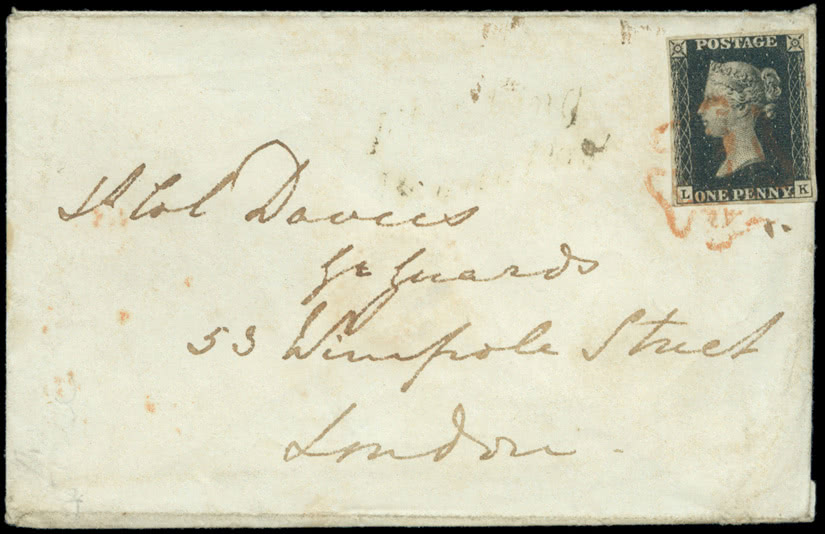 POSTAGE
L ONE PENNY. K
Lt Col Davies
Gr Guards
53 Wimpole Street
London